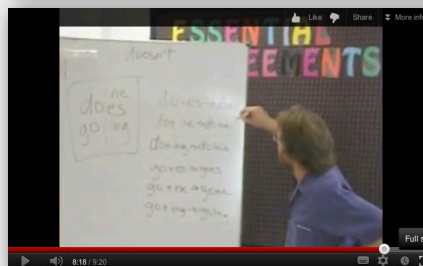 Like Share More info
ESSENTIAL
EEMENTS
doesn't
ne
do es
go ing
do + es → 
do + ne → done
do + ing → doing
go + es → goes
go + ne → gone
go + ing → going
Full s
8:18 / 9:20